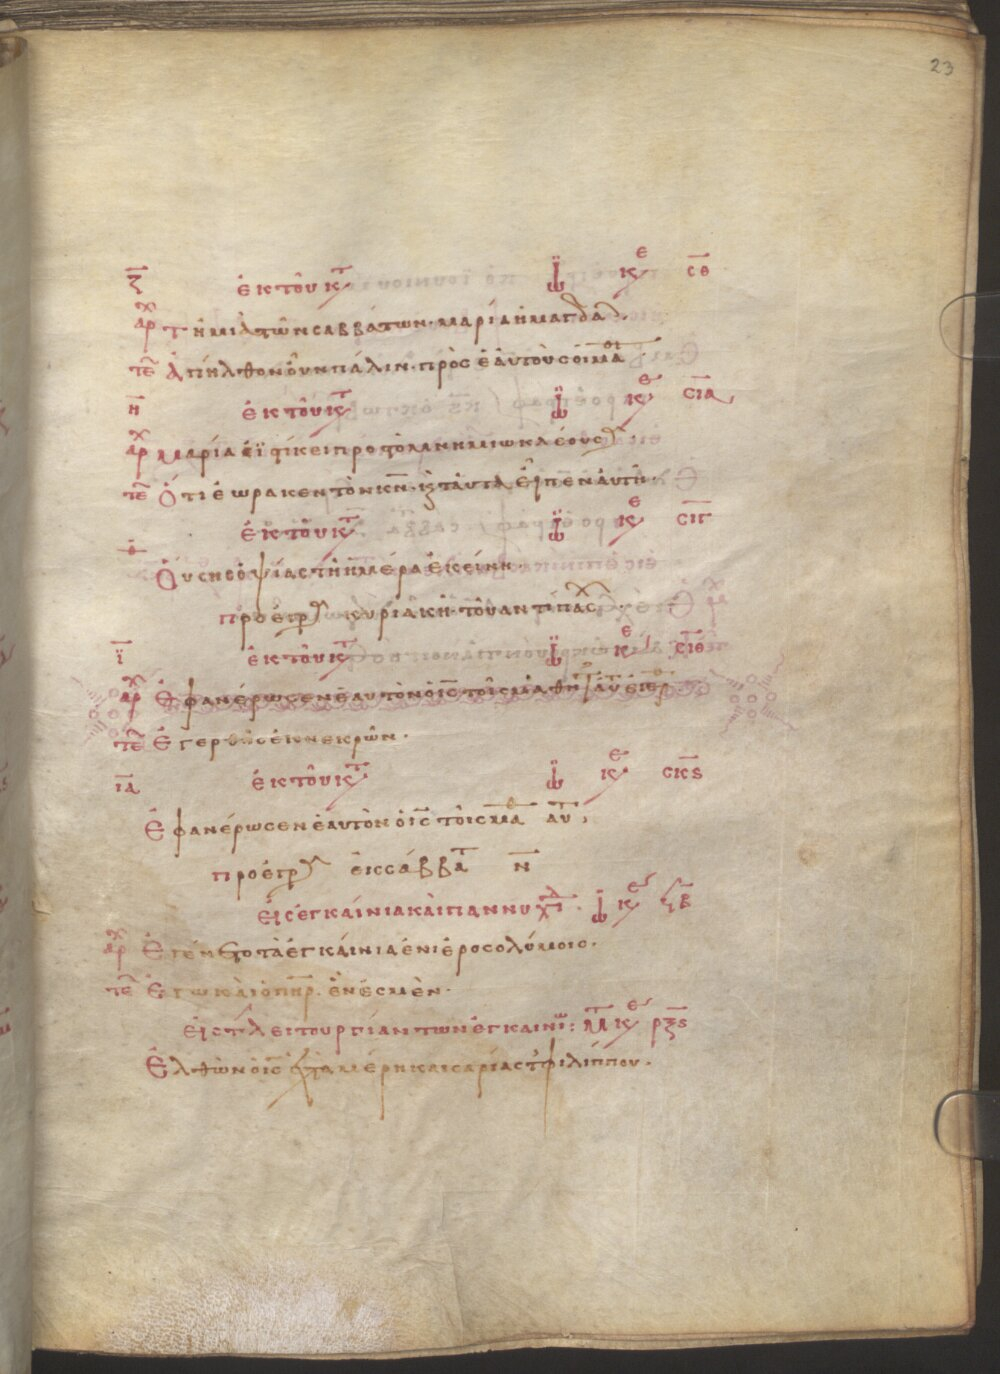 23
ζ ἐκ τοῦ κτ Ἰω κε σθ
αρχ Τῆ μιᾶ τῶν σαββάτων· μαρία ἡ μαγδαλ
τε Ἀπῆλθον οὖν πάλιν· πρὸς ἑαυτοὺς οἱ μαθ
η ἐκ τοῦ κτ Ἰω κε σια
αρχ Μαρία εἱστήκει πρὸς τὸ μνημίω κλέουσ
τε Ὅτι ἑώρακεν τὸν κν· κ ταῦτα εἶπεν αὐτῆ·
ἐκ τοῦ κτ Ἰω κε σιγ
θ
Οὔσης ὀψίας τῆ ἡμέρα ἐκείνη·
προεγρ κυριακὴ· τοῦ ἀντίπασχ·
ι ἐκ τοῦ κτ Ἰω κε σιθ
αρχ Ἐφανέρωσεν ἑαυτὸν ὁ ις τοῖς μαθη αυ ἐγερ
τε Ἐγερθεὶς ἐκ νεκρῶν·
ια ἐκ τοῦ κτ Ἰω κε σκς
Ἐφανέρωσεν ἑαυτὸν ὁ ις τοῖς μαθ αυτ
προεγρ εἰς σάββατ ν
Εἰς ἐγκαίνια καὶ παννυχι· Ἰω κε β
αρχ Ἐγένετο τὰ ἐγκαίνια ἐν ἱεροσολύμοις·
τε Ἐγὼ καὶ ὁ πηρ· ἕν ἐσμὲν·
Εἰς τ λειτουργίαν τῶν ἐγκαινι: Μτ κε ρξς
Ἐλθὼν ὁ ις εἰς τὰ μέρη καισαρίας τ φιλίππου·